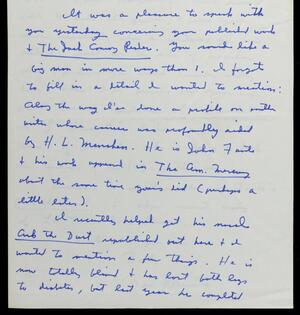 It was a pleasure to speak with
you yesterday concerning your published work
& The Jack Conroy Reader. You sound like a
big man in more ways than 1. I forgot
to fill in a detail I wanted to mention:
Along the way I've done a profile on another
writer whose career was profoundly aided
by H. L. Mencken. He is John Fante
& his work appeared in The Am. Mercury
about the same time yours did (perhaps a
little later).
I recently helped get his novel
Ask the Dust republished out here & I
wanted to mention a few things. He is
now totally blind & has lost both legs
to diabetes, but last year he completed